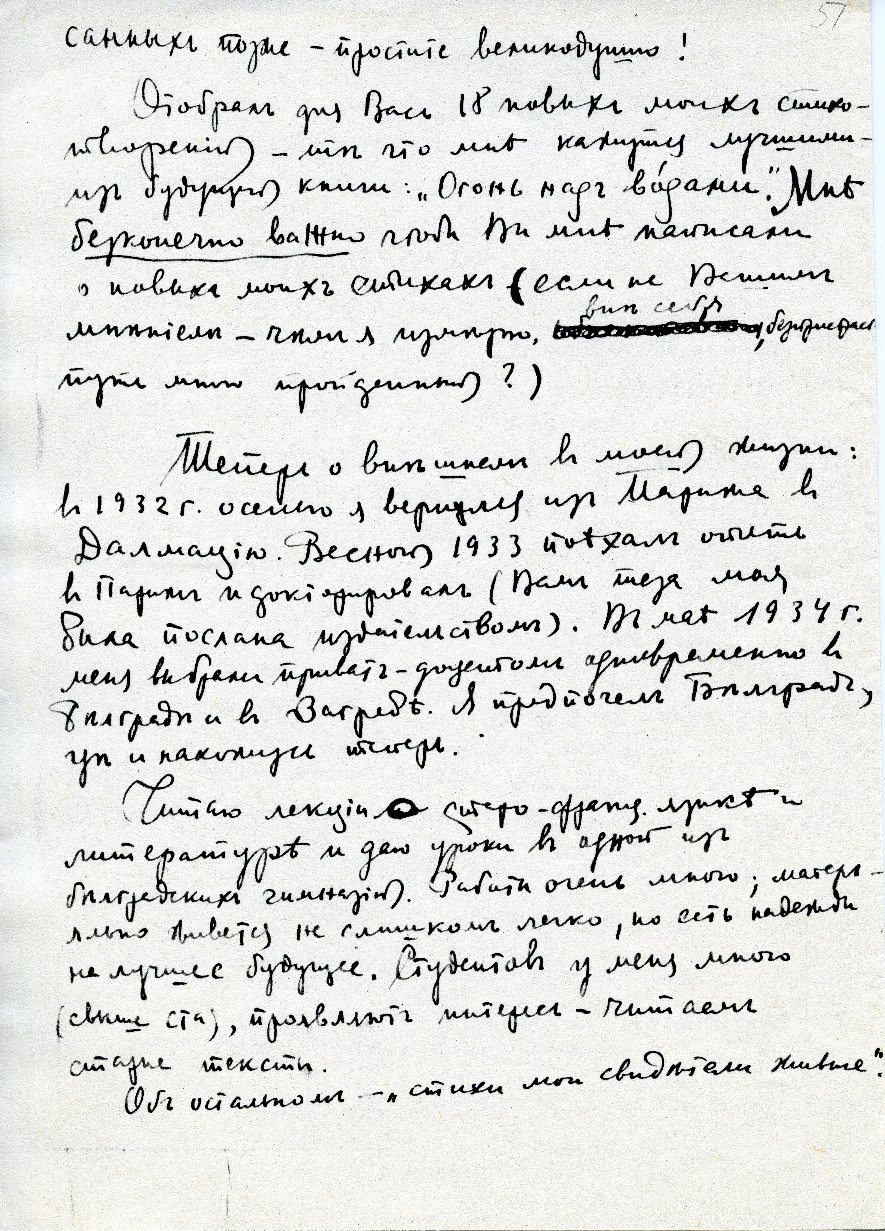 57
санныхъ позже – простите великодушно!
Отобралъ для Васъ 18 новыхъ моихъ стихо-
твореній – тѣ что мнѣ кажутся лучшими –
изъ будущей книги: „Огонь надъ во́дами". Мнѣ
безконечно важно чтобы Вы мнѣ написали
о новыхъ моихъ стихахъ (если не Вашимъ
мнѣніемъ – чѣмъ я измѣрю, внѣ себя,
путь мною пройденный?)
Теперь о внѣшнемъ въ моей жизни:
въ 1932 г. осенью я вернулся изъ Парижа въ
Далмацію. Весной 1933 поѣхалъ опять
въ Парижъ и докторировалъ (Вамъ теза моя
была послана издательствомъ). Въ маѣ 1934 г.
меня выбрали приватъ-доцентомъ одновременно въ
Бѣлградѣ и въ Загребѣ. Я предпочелъ Бѣлградъ,
гдѣ и нахожусь теперь.
Читаю лекціи о старо-франц. языкѣ и
литературѣ и даю уроки въ одной изъ
бѣлградскихъ гимназій. Работы очень много; матерь-
яльно живется не слишкомъ легко, но есть надежды
на лучшее будущее. Студентовъ у меня много
(свыше ста), проявляютъ интересъ – читаемъ
старые тексты.
Объ остальномъ – „стихи мои свидѣтели живые".